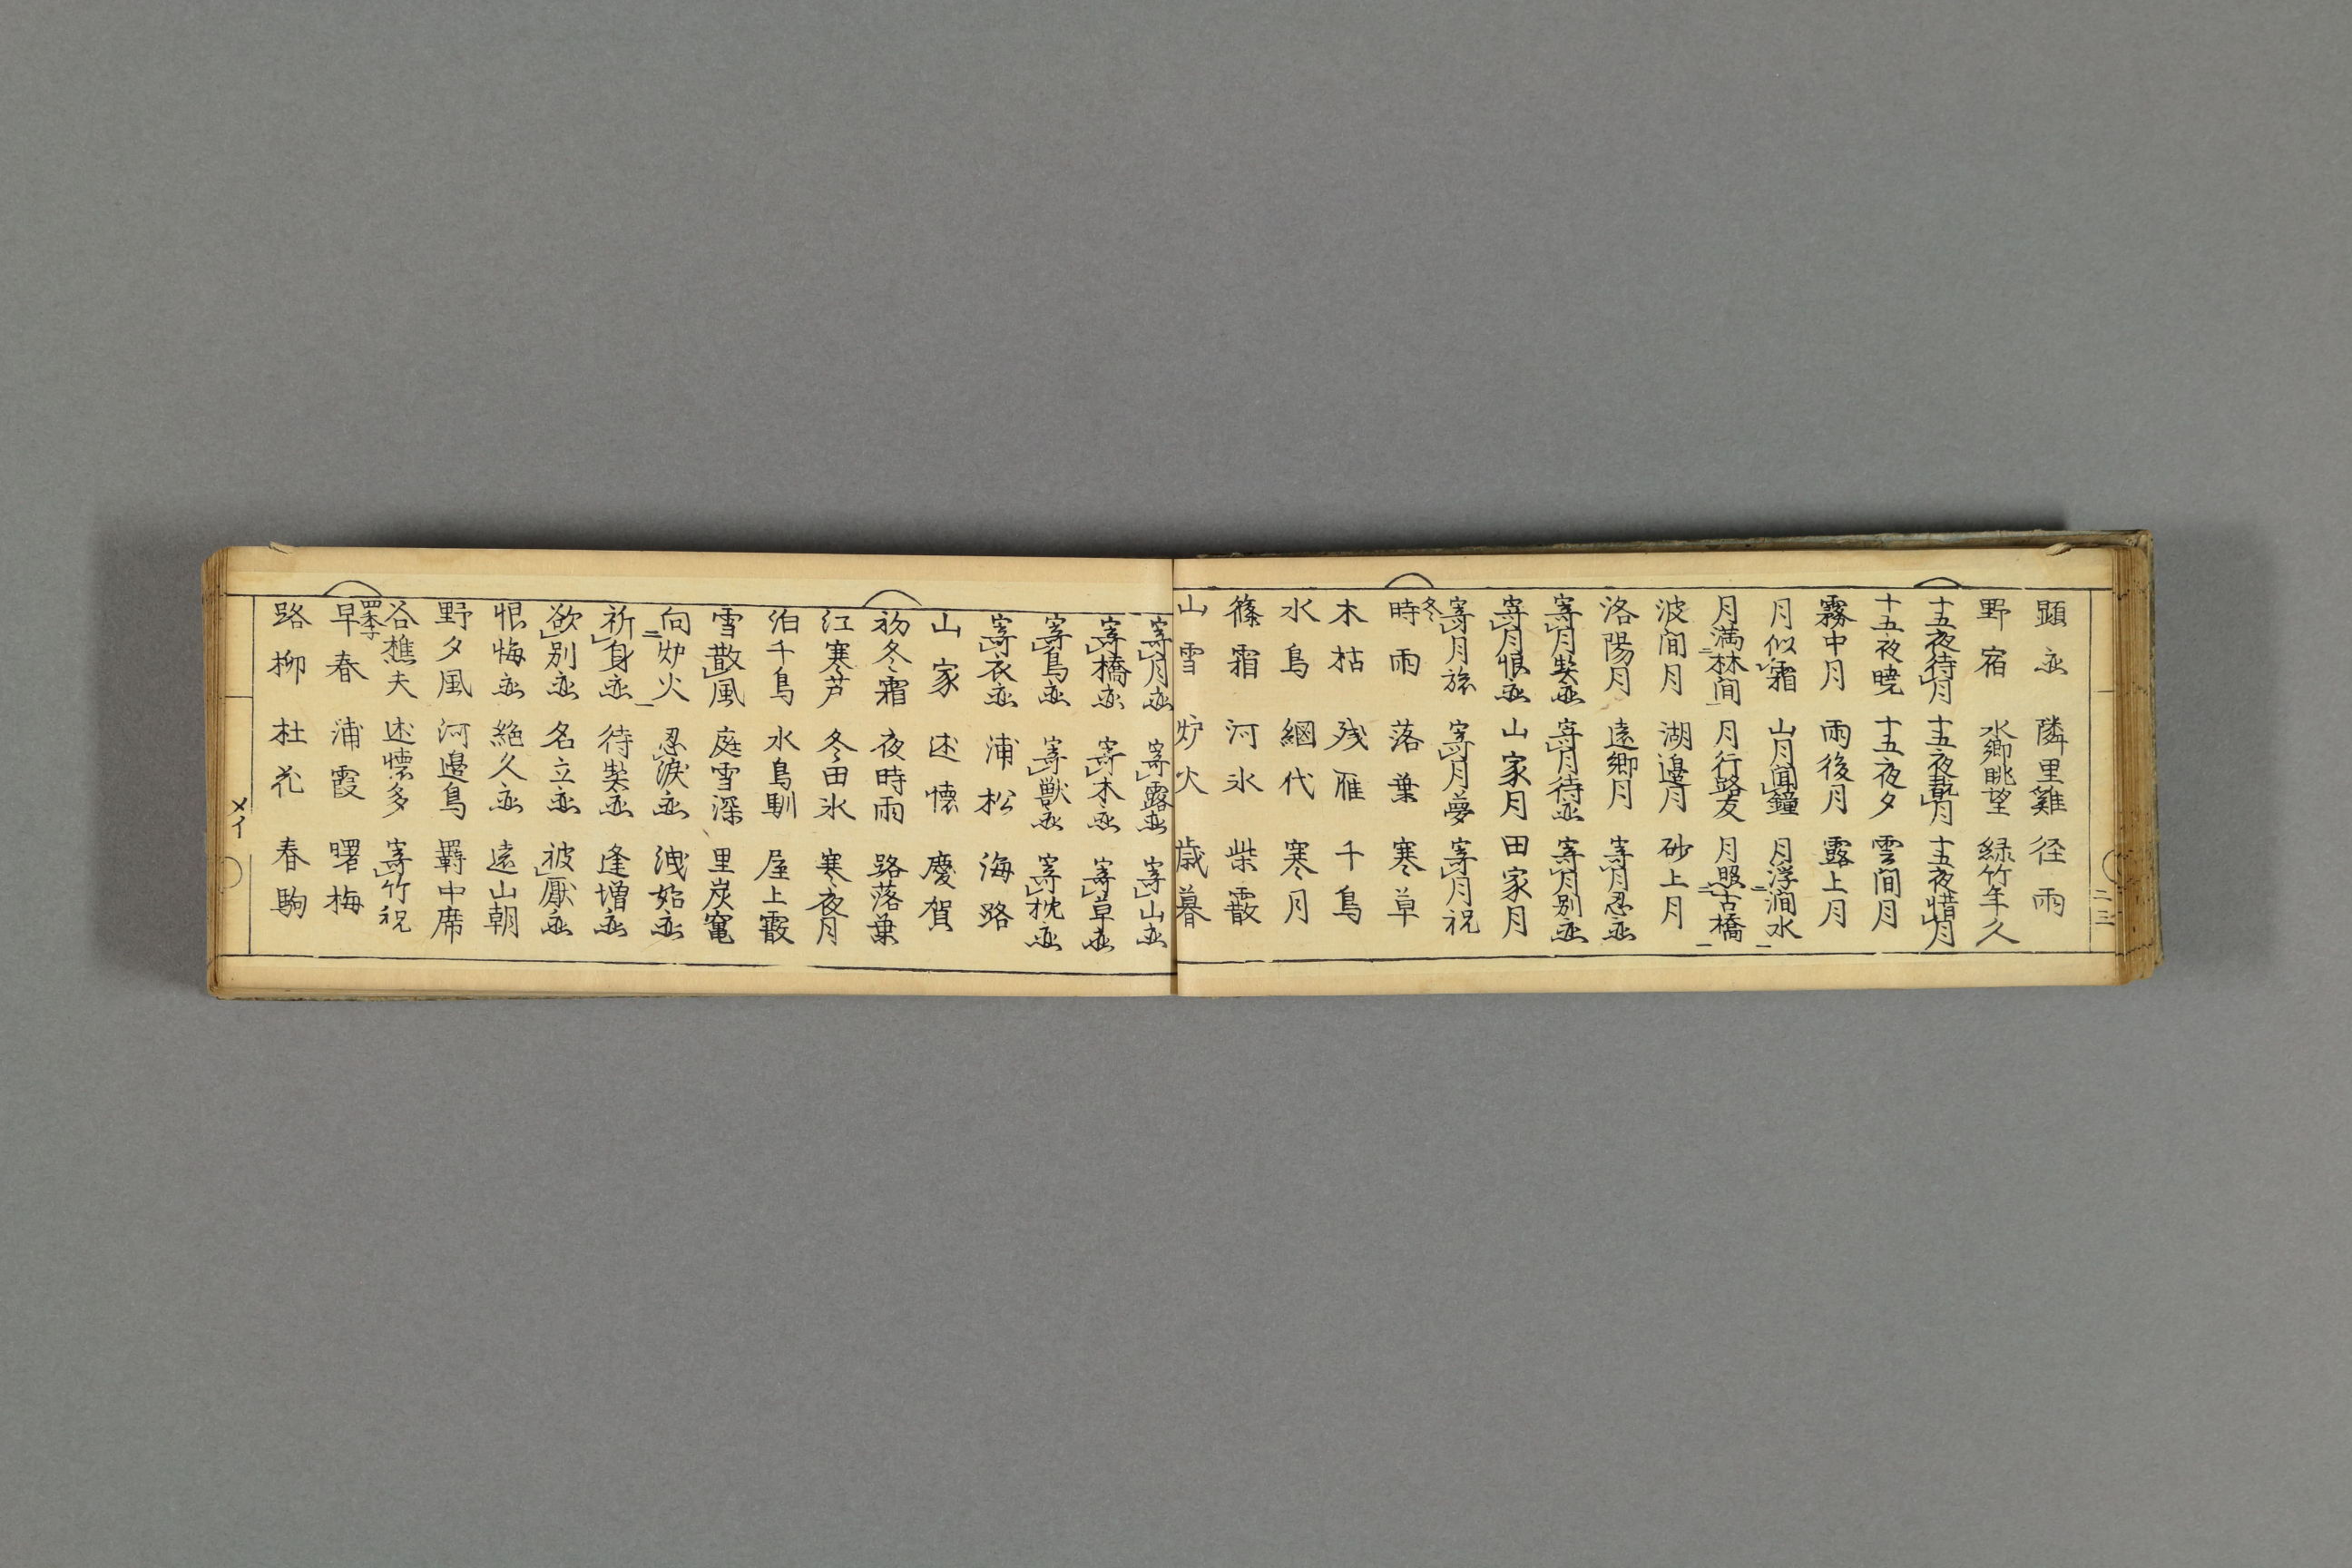 顕恋 隣里雞 径雨
野宿 水郷眺望 緑竹年久
十五夜待月 十五夜翫月 十五夜惜月
十五夜暁 十五夜夕 雲间月
霧中月 雨後月 露上月
月似霜 山月聞鐘 月浮澗水
月満林间 月行路友 月照古橋
波间月 湖邉月 砂上月
洛陽月 遠郷月 寄月忍恋
寄月契恋 寄月待恋 寄月別恋
寄月恨恋 山家月 田家月
寄月旅 寄月夢 寄月祝
冬
時雨 落葉 寒草
木枯 残雁 千鳥
水鳥 網代 寒月
篠霜 河氷 柴霰
山雪 炉火 歳暮
寄月恋 寄露恋 寄山恋
寄橋恋 寄木恋 寄草恋
寄鳥恋 寄獣恋 寄枕恋
寄衣恋 浦松 海路
山家 述懐 慶賀
初冬霜 夜時雨 路落葉
江寒芦 冬田氷 寒夜月
泊千鳥 水鳥馴 屋上霰
雪散風 庭雪深 里炭竃
向炉火 忍涙恋 洩始恋
祈身恋 待契恋 逢増恋
欲別恋 名立恋 被厭恋
恨悔恋 絶久恋 遠山朝
野夕風 河邉鳥 羇中席
谷樵夫 述懐多 寄竹祝
四季
早春 浦霞 曙梅
路柳 杜花 春駒
メイ
二三